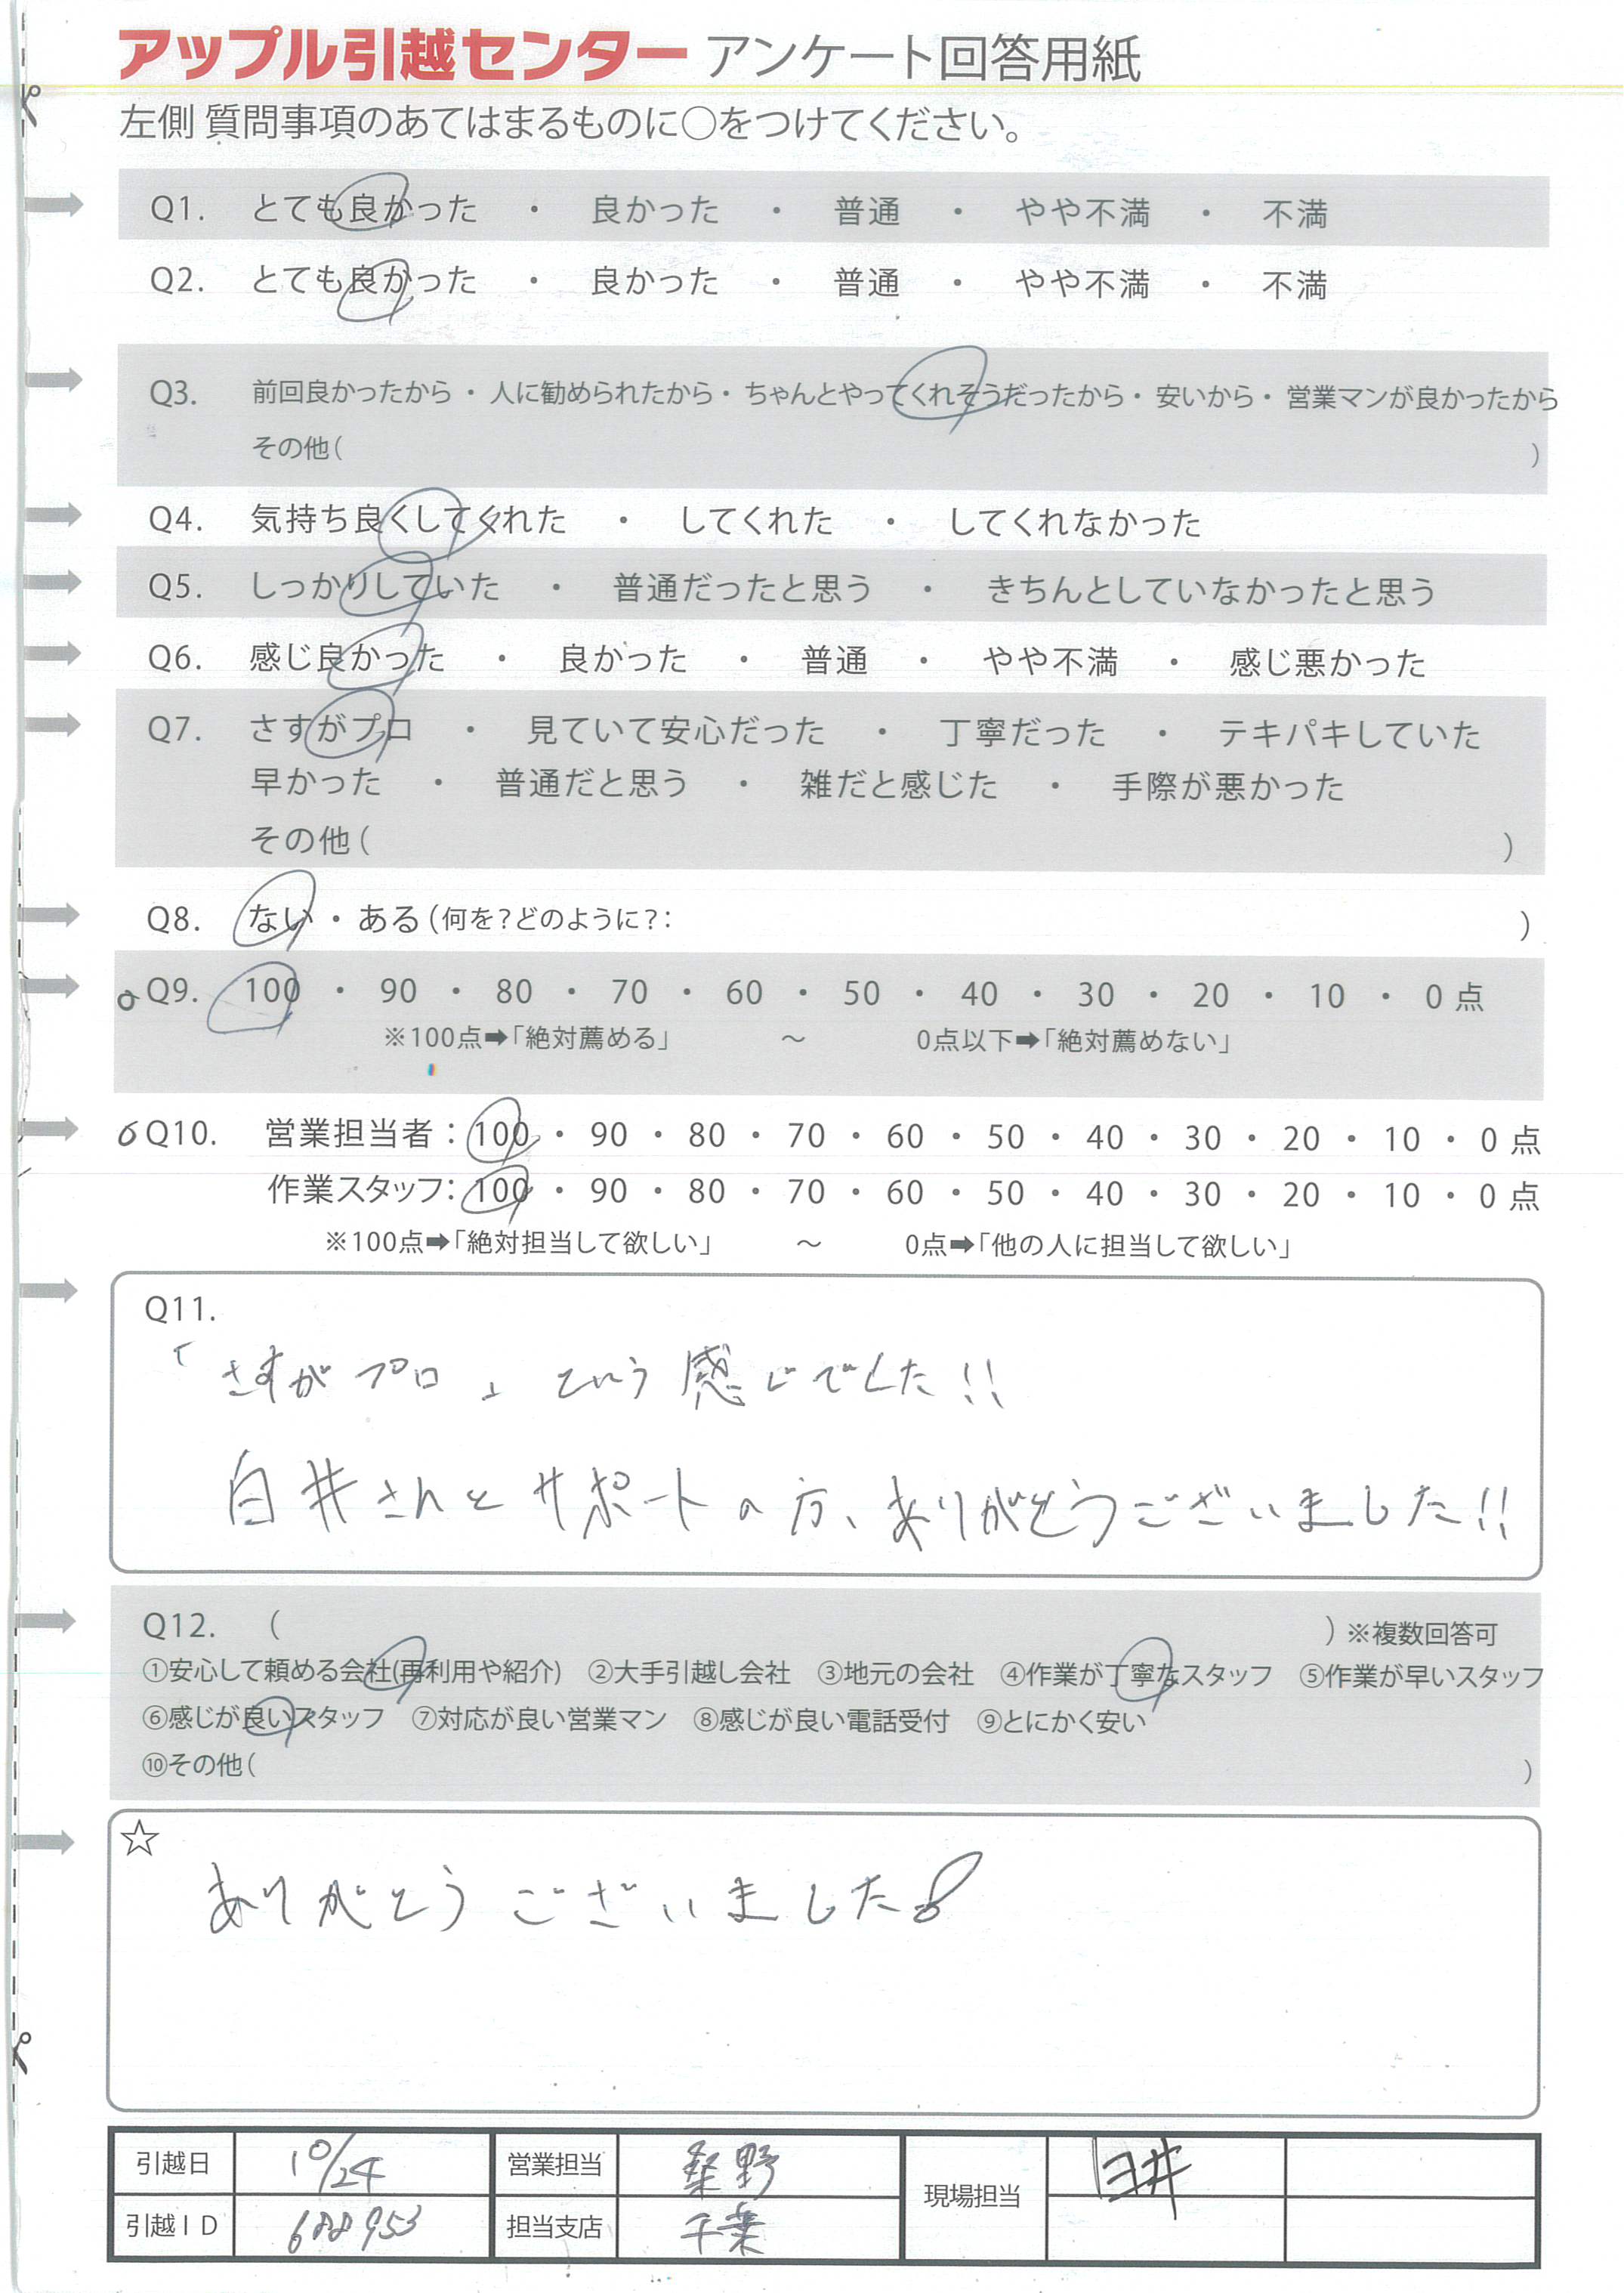 アップル引越センター アンケート回答用紙
左側 質問事項のあてはまるものに○をつけてください。
Q1. とても良かった ・ 良かった ・ 普通 ・ やや不満 ・ 不満
Q2. とても良かった ・ 良かった ・ 普通 ・ やや不満 ・ 不満
Q3. 前回良かったから ・ 人に勧められたから ・ ちゃんとやってくれそうだったから ・ 安いから ・ 営業マンが良かったから
その他( )
Q4. 気持ち良くしてくれた ・ してくれた ・ してくれなかった
Q5. しっかりしていた ・ 普通だったと思う ・ きちんとしていなかったと思う
Q6. 感じ良かった ・ 良かった ・ 普通 ・ やや不満 ・ 感じ悪かった
Q7. さすがプロ ・ 見ていて安心だった ・ 丁寧だった ・ テキパキしていた
早かった ・ 普通だと思う ・ 雑だと感じた ・ 手際が悪かった
その他( )
Q8. ない ・ ある (何を?どのように?: )
Q9. 100 ・ 90 ・ 80 ・ 70 ・ 60 ・ 50 ・ 40 ・ 30 ・ 20 ・ 10 ・ 0 点
※100点➡「絶対薦める」 ～ 0点以下➡「絶対薦めない」
Q10. 営業担当者：100 ・ 90 ・ 80 ・ 70 ・ 60 ・ 50 ・ 40 ・ 30 ・ 20 ・ 10 ・ 0 点
作業スタッフ：100 ・ 90 ・ 80 ・ 70 ・ 60 ・ 50 ・ 40 ・ 30 ・ 20 ・ 10 ・ 0 点
※100点➡「絶対担当して欲しい」 ～ 0点➡「他の人に担当して欲しい」
Q11.
「さすがプロ」という感じでした!!
白井さんとサポートの方、ありがとうございました!!
Q12. ( ) ※複数回答可
①安心して頼める会社(再利用や紹介) ②大手引越し会社 ③地元の会社 ④作業が丁寧なスタッフ ⑤作業が早いスタッフ
⑥感じが良いスタッフ ⑦対応が良い営業マン ⑧感じが良い電話受付 ⑨とにかく安い
⑩その他( )
☆
ありがとうございました!
引越日 10/24 営業担当 桑野 現場担当 白井
引越ID 688953 担当支店 千葉